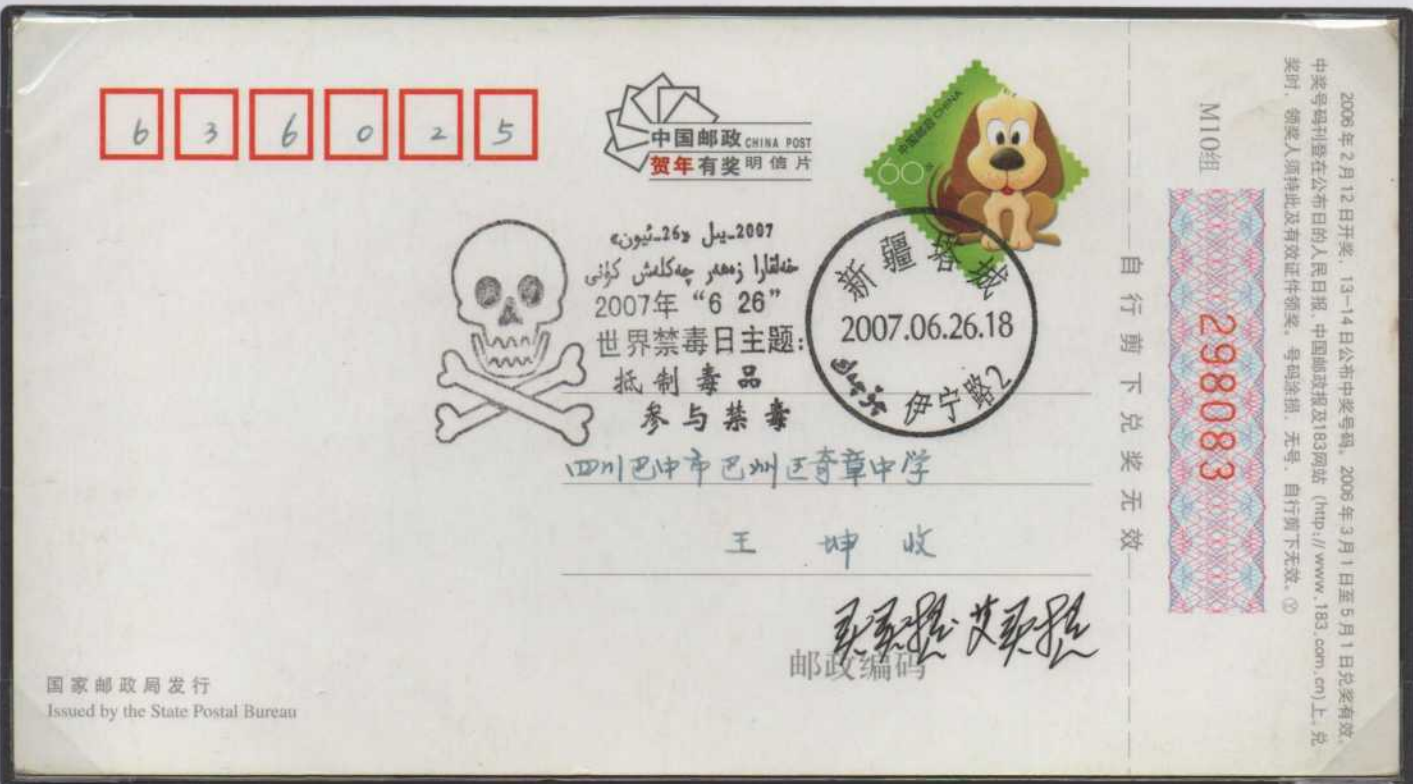 636025
中国邮政 CHINA POST
贺年有奖明信片
中国邮政 CHINA
60分
2007-يىل «26-ئىيۇن»
خەلقئارا زەھەر چەكلەش كۈنى
2007年“6 26”
世界禁毒日主题:
抵制毒品
参与禁毒
新疆塔城
2007.06.26.18
伊宁路2
四川巴中市巴州区奇章中学
王坤收
邮政编码
国家邮政局发行
Issued by the State Postal Bureau
自行剪下兑奖无效
M10组
298083
2006年2月12日开奖,13-14日公布中奖号码,2006年3月1日至5月1日兑奖有效。
中奖号码刊登在公布日的人民日报、中国邮政报及183网站(http://www.183.com.cn)上。兑
奖时,领奖人须持此及有效证件领奖。号码涂损、无号、自行剪下无效。